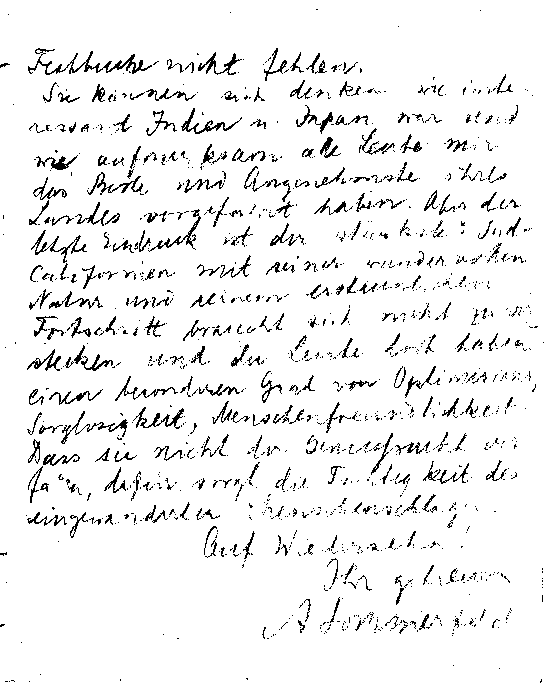 Festbuche nicht fehlen.
Sie können sich denken wie inte-
ressant Indien u. Japan war und
wie aufmerksam alle Leute mir
das Beste und Angenehmste ihres
Landes vorgeführt haben. Aber der
letzte Eindruck ist der stärkste: Süd-
Californien mit seiner wundervollen
Natur und seinem erstaunlichen
Fortschritt braucht sich nicht zu ver
stecken und die Leute dort haben
einen besonderen Grad von Optimismus,
Sorglosigkeit, Menschenfreundlichkeit.
Dass sie nicht der Genusssucht ver
fallen, dafür sorgt die Tüchtigkeit des
eingewanderten Menschenschlages.
Auf Wiedersehn!
Ihr getreuer
A Sommerfeld